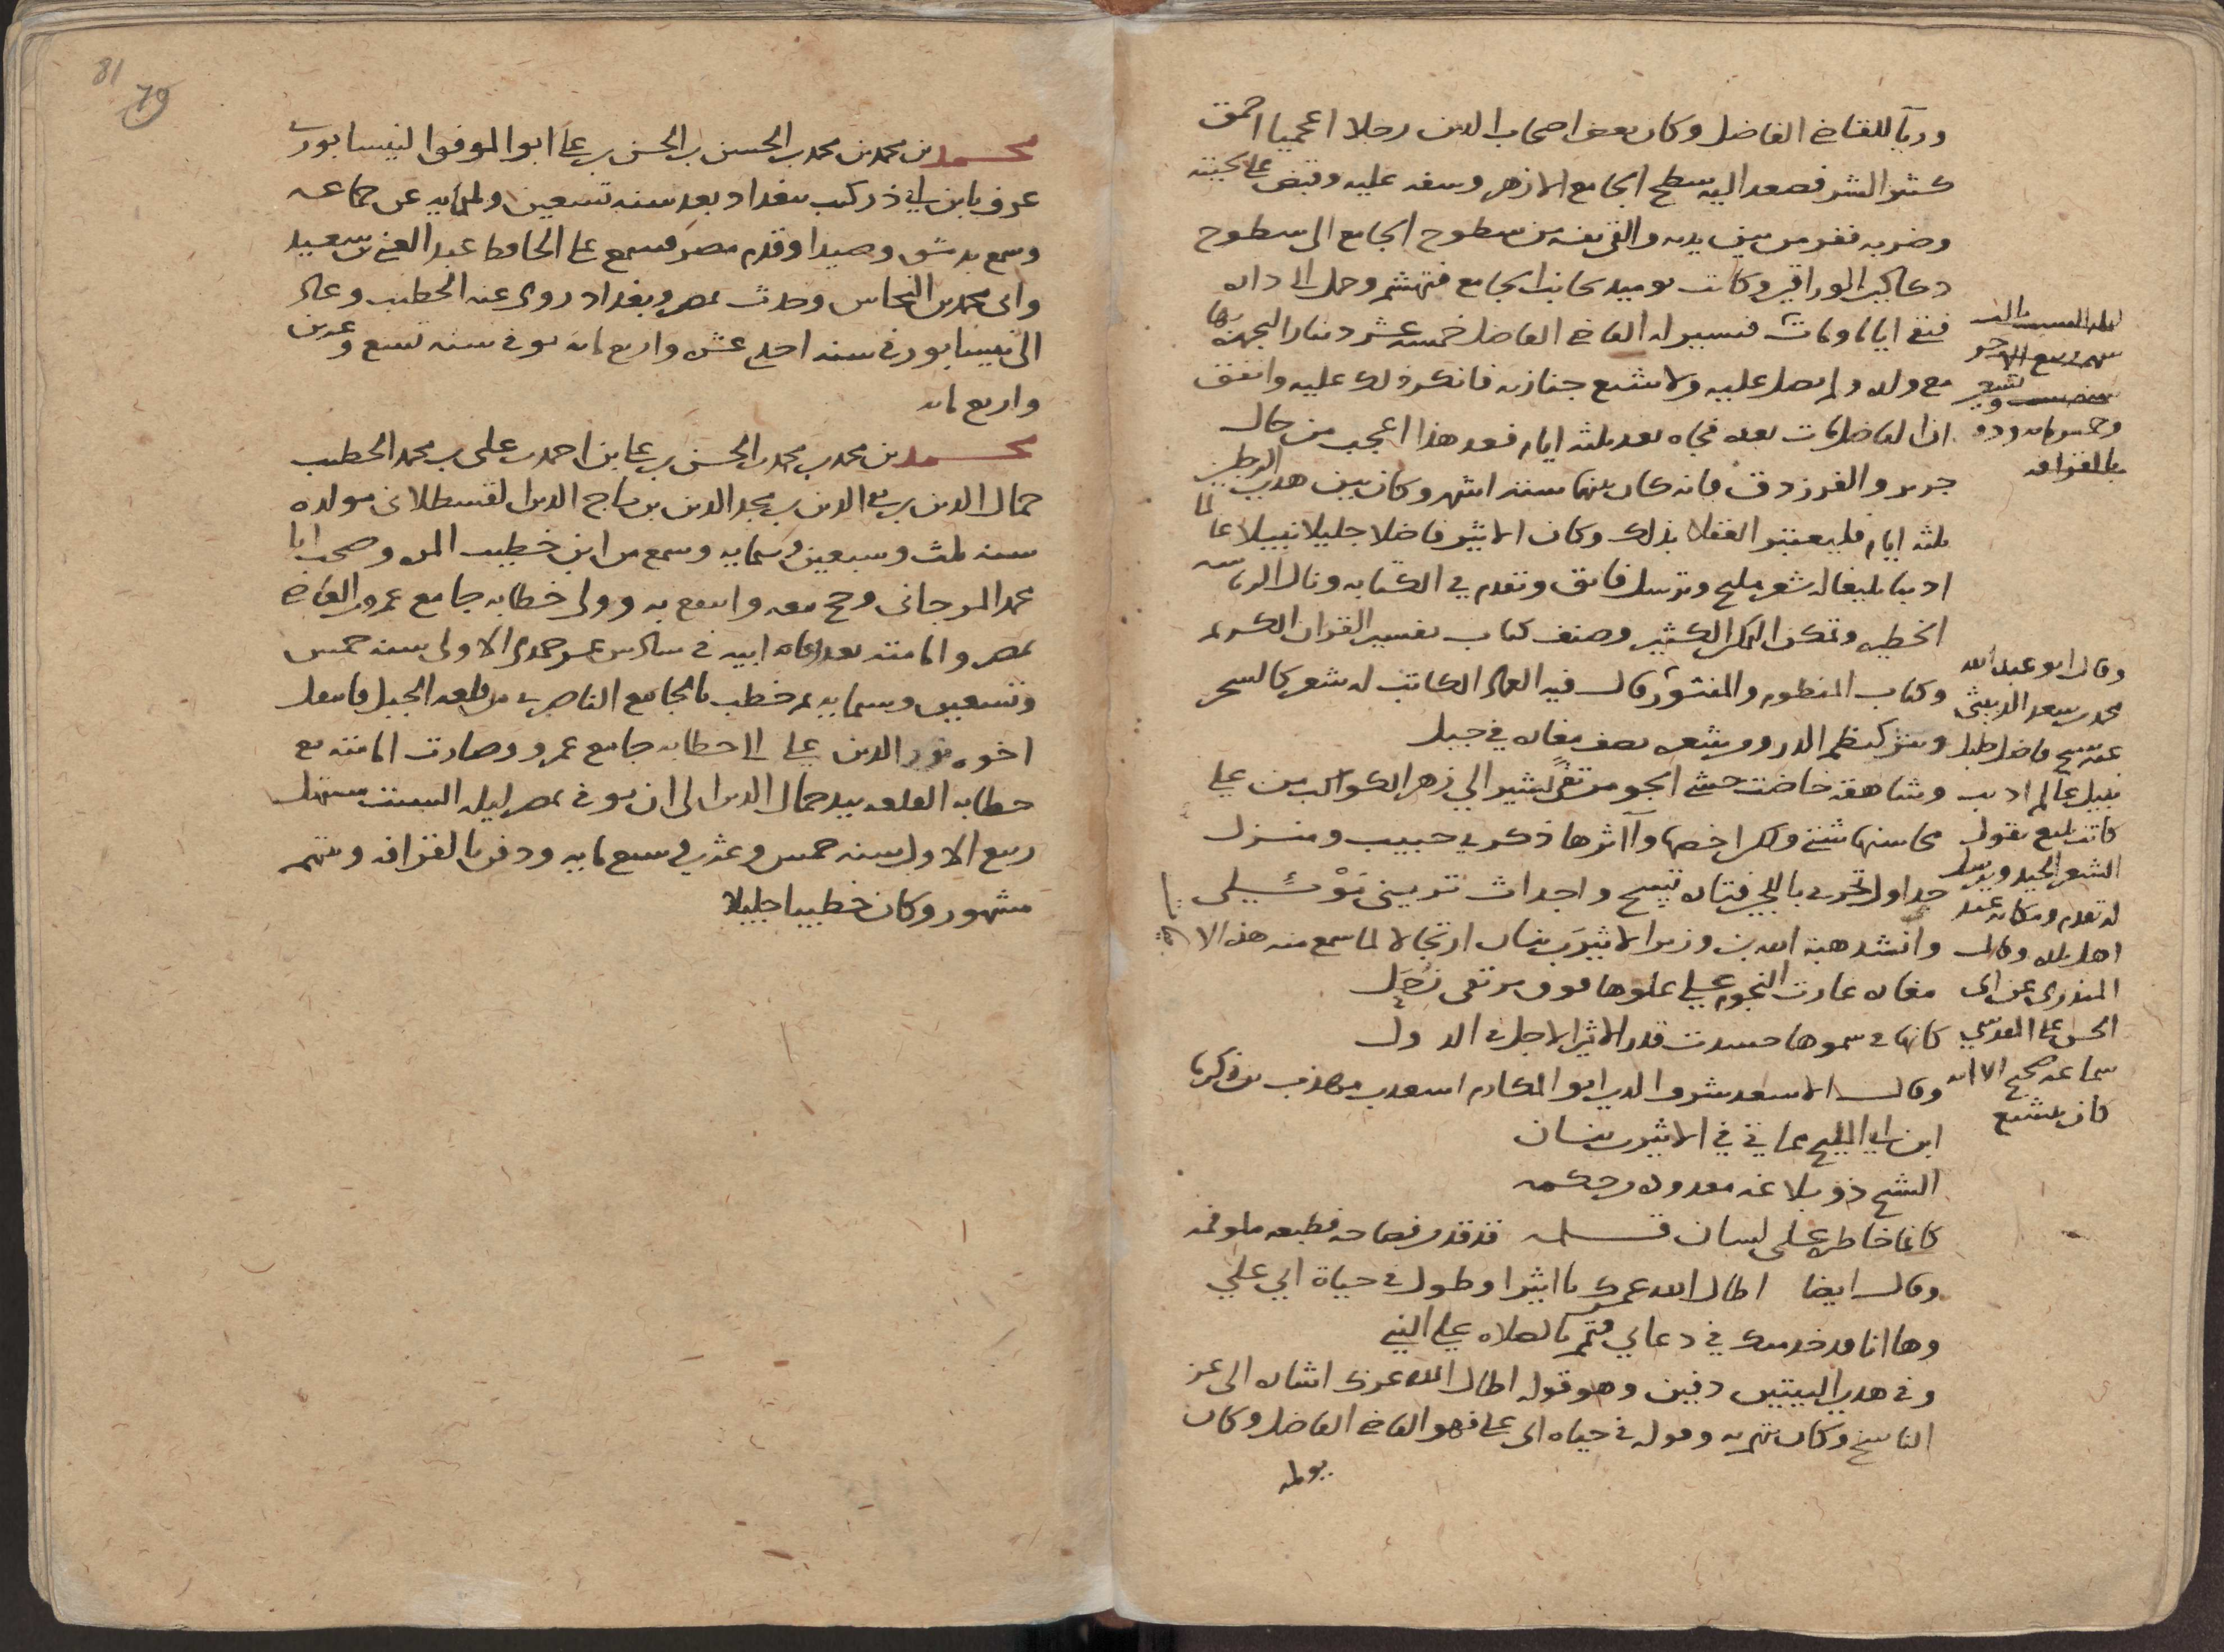 وربآ للقاضي الفاضل وكان بعض اصحاب الدين رجلا اعجميا احمق
كثير الشر فصعد اليه سطح الجامع الازهر وسفه عليه وقبض على لحيته
وضربه ففر من بين يديه والقى نفسه من سطوح الجامع الى سطوح
دكاكين الوراقين وكانت يوميد بجانب الجامع فتهشم وحمل الى داره
فبقى اياما ومات فسير له القاضي الفاضل خمسة عشر دينارا ليجهز بها
مع ولده ولم يصل عليه ولا شيع جنازته فانكر ذلك عليه واتفق
ان الفاضل مات بعده فجاه بعد ثلثه ايام فعد هذا اعجب من حال
جرير والفرزدق فانه كان بينهما ستة اشهر وكان بين هدين الرجلين
ثلثه ايام فليعتبر العقلا بذلك وكان الاثير فاضلا جليلا نبيلا عالما
اديبا بليغا له شعر مليح وترسل فائق وتقدم في الكتابه ونال الرئاسه
الخطيره وتمكن التمكن الكثير وصنف كتاب تفسير القران الكريم
وكتاب المنظوم والمنثور قال فيه العماد الكاتب له شعر كالسحر
ونثر كنظم الدرر وشعره يصف مغاره في جبل
وشاهقة خاضت حشى الجو مرتقى تشير الى زهر الكواكب من علي
محاسنها شتى ولكن اخصها وآثرها ذكرى حبيب ومنزل
وانشد هبة الله بن وزير الاثير بن بنان ارتجالا لما سمع منه هذه الا
مغاره غارت النجوم على علوها فوق مرتقى زحل
كانها في سموها حسدت قدر الاثير الاجل في الدول
وقال الاسعد شرف الدين ابو المكارم اسعد بن مهذب بن زكريا
ابن ابي المليح مماتي في الاثير بن بنان
الشيخ ذو بلاغه معدوله وحكمه
كانما خاطره على لسان قلمه
وقال ايضا اطال الله عمرك يا اثيرا وطول في حياة ابي علي
وها انا قد خدمتك في دعاي فتمم بالصلاه على النبي
وفي هدين البيتين دفين وهو قوله اطال الله عمرك اشاره الى عمر
الناسخ وكان يتهم به وقوله في حياه ابي علي فهو القاضي الفاضل وكان
ليله السبت ثالث
شهر ربيع الاخر
سنه ست وتسعين
وخمسمائه ودفن
بالقرافه
وقال ابو عبد الله
محمد بن سعيد الدبيثي
عنه شيخ فاضل جليل
نبيل عالم اديب
كاتب بليغ يقول
الشعر الجيد ويترسل
له تقدم ومكانه عند
اهل بلده وقال
المنذري عن ابي
الحسن علي المقدسي
سماعه صحيح الا انه
كان يتشيع
81
79
محمد بن محمد بن محمد بن الحسين بن الحسن بن علي ابو الموفق النيسابوري
عرف بابن ابي ذر كتب ببغداد بعد سنه تسعين وثلثمايه عن جماعه
وسمع بدمشق وصيدا وقدم مصر فسمع على الحافظ عبد الغني بن سعيد
وابي محمد بن النحاس وحدث بمصر وبغداد روى عنه الخطيب وعاد
الى نيسابور في سنه احدى عشره واربع مائه توفي سنه تسع وعشرين
واربع مائه
محمد بن محمد بن محمد بن الحسن بن علي بن احمد بن علي بن محمد الخطيب
جمال الدين بن تقي الدين بن مجد الدين بن تاج الدين القسطلاني مولده
سنه ثلث وسبعين وستمايه وسمع من ابن خطيب المزه وصحب ابا
محمد المرجاني وحج معه وانتفع به وولي خطابه جامع عمرو بن العاص
بمصر والامامه بعد وفاه ابيه في سادس عشر جمدى الاولى سنه خمس
وتسعين وستمايه ثم خطب بالجامع الناصري من قلعه الجبل فانتقل
اخوه نور الدين علي الى خطابه جامع عمرو وصارت الامامه مع
خطابه القلعه بيد جمال الدين الى ان توفي بمصر ليله السبت مستهل
ربيع الاول سنه خمس وعشرين وسبع مايه ودفن بالقرافه وبيتهم
مشهور وكان خطيبا جليلا